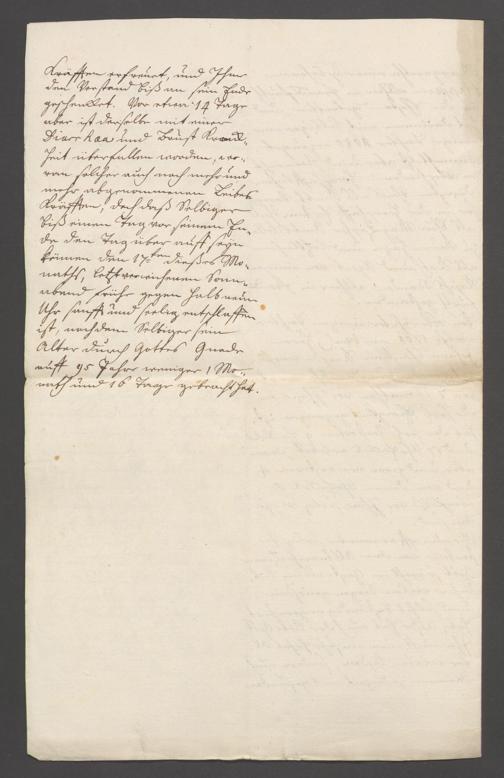 Kräfften erfreuet, und Ihm
den Verstand biß an sein Ende
geschenket. Vor etwa 14 Tage
aber ist derselbe mit einer
Diarrhaea und Brust Kranck-
heit überfallen worden, wo-
von solcher auch noch mehr und
mehr abgenommenen Leibes
Kräfften, doch daß Selbiger
biß einen Tag vor seinem En-
de den Tag über auff seyn
können den 17ten dießes Mo-
naths, letztverwichenen Sonn-
abend frühe gegen halb neun
Uhr sanfft und seelig entschlaffen
ist, nachdem Selbiger sein
Alter durch Gottes Gnade
auff 95 Jahr weniger 1 Mo-
nath und 16 Tage gebracht hat.